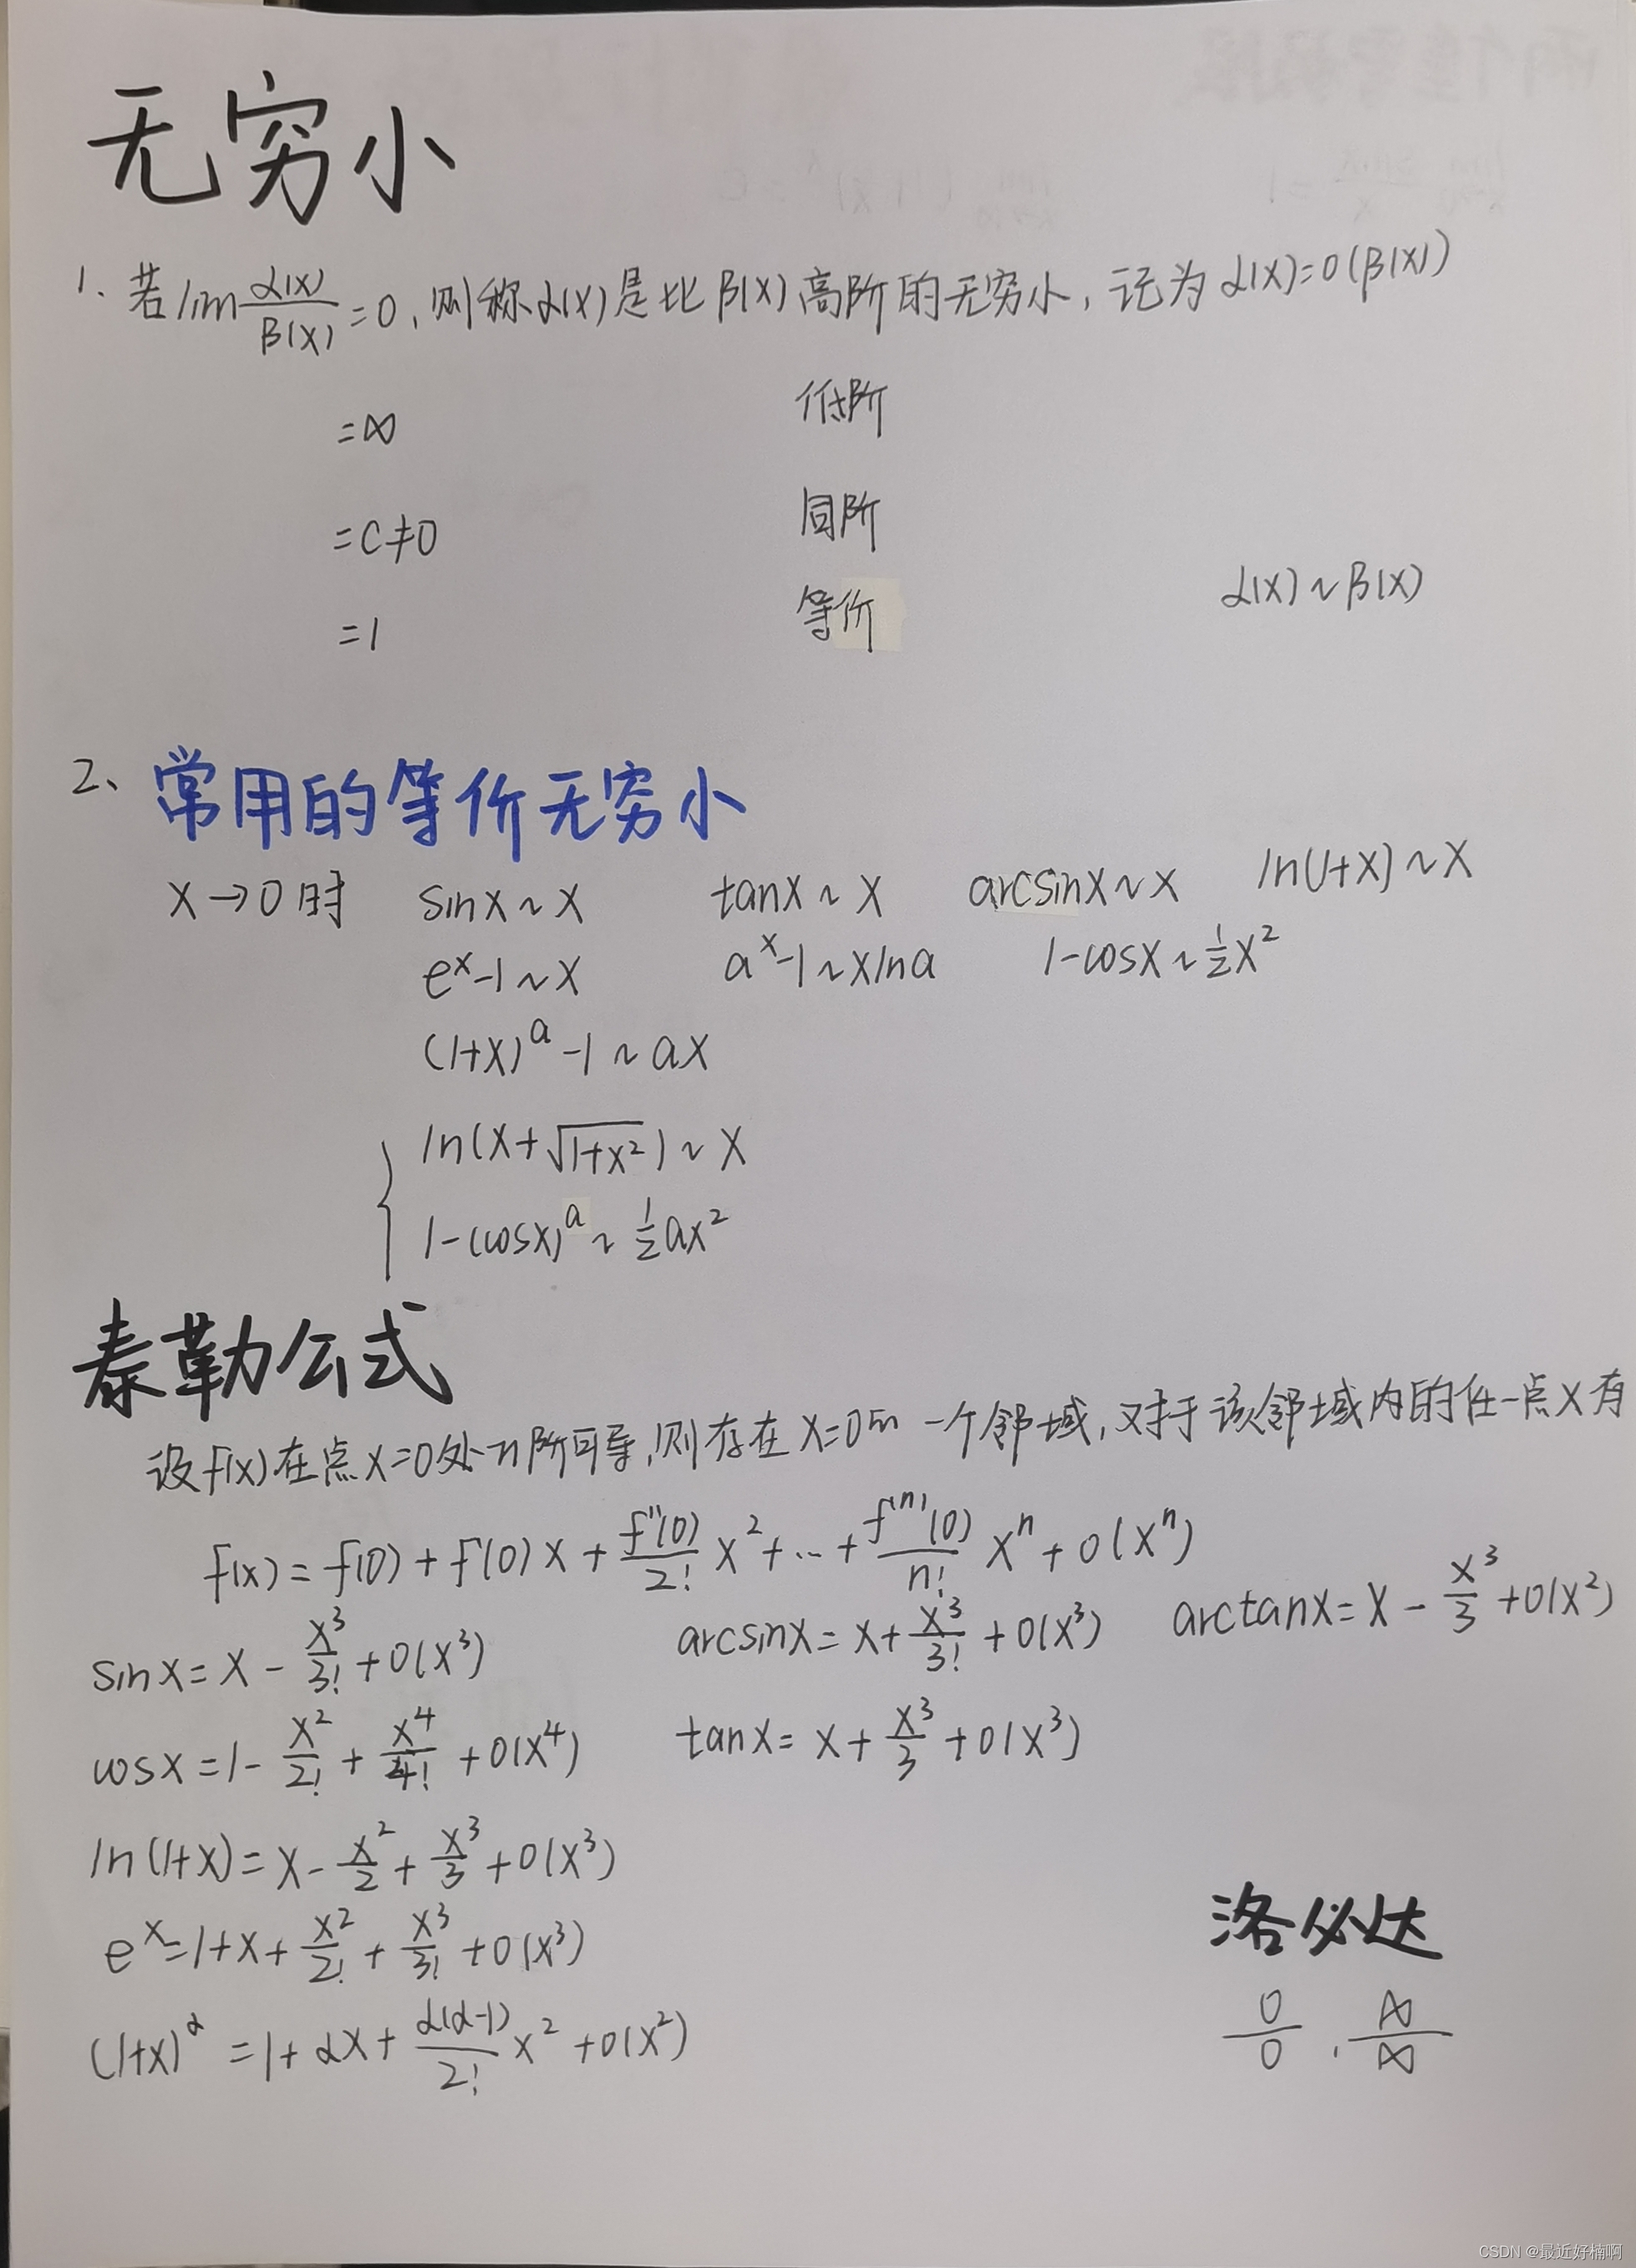 无穷小
1、若lim α(x)/β(x) = 0, 则称α(x)是比β(x)高阶的无穷小, 记为α(x)=o(β(x))
=∞ 低阶
=C≠0 同阶
=1 等价 α(x)~β(x)
2、常用的等价无穷小
x→0时 sinx~x tanx~x arcsinx~x ln(1+x)~x
e^x-1~x a^x-1~xlna 1-cosx~1/2x^2
(1+x)^a-1~ax
ln(x+√(1+x^2))~x
1-(cosx)^a~1/2ax^2
泰勒公式
设f(x)在点x=0处n阶可导, 则存在x=0的一个邻域, 对于该邻域内的任一点x有
f(x)=f(0)+f'(0)x+f''(0)/2! x^2+…+f^(n)(0)/n! x^n+o(x^n)
sinx=x-x^3/3!+o(x^3) arcsinx=x+x^3/3!+o(x^3) arctanx=x-x^3/3+o(x^2)
cosx=1-x^2/2!+x^4/4!+o(x^4) tanx=x+x^3/3+o(x^3)
ln(1+x)=x-x^2/2+x^3/3+o(x^3)
e^x=1+x+x^2/2!+x^3/3!+o(x^3)
(1+x)^α=1+αx+α(α-1)/2! x^2+o(x^2)
洛必达
0/0, ∞/∞
CSDN @最近好楠啊